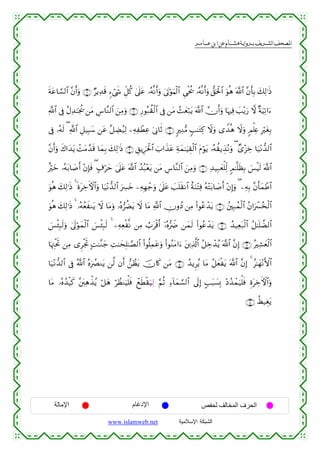 المصحف الشريف برواية هشام عن ابن عامر
ذَٰلِكَ بِأَنَّ ٱللَّهَ هُوَ ٱلۡحَقُّ وَأَنَّهُۥ يُحۡيِ ٱلۡمَوۡتَىٰ وَأَنَّهُۥ عَلَىٰ كُلِّ شَيۡءٖ قَدِيرٞ ۝ وَأَنَّ ٱلسَّاعَةَ
ءَاتِيَةٞ لَّا رَيۡبَ فِيهَا وَأَنَّ ٱللَّهَ يَبۡعَثُ مَن فِي ٱلۡقُبُورِ ۝ وَمِنَ ٱلنَّاسِ مَن يُجَٰدِلُ فِي ٱللَّهِ
بِغَيۡرِ عِلۡمٖ وَلَا هُدٗى وَلَا كِتَٰبٖ مُّنِيرٖ ۝ ثَانِيَ عِطۡفِهِۦ لِيُضِلَّ عَن سَبِيلِ ٱللَّهِۖ لَهُۥ فِي
ٱلدُّنۡيَا خِزۡيٞۖ وَنُذِيقُهُۥ يَوۡمَ ٱلۡقِيَٰمَةِ عَذَابَ ٱلۡحَرِيقِ ۝ ذَٰلِكَ بِمَا قَدَّمَتۡ يَدَاكَ وَأَنَّ
ٱللَّهَ لَيۡسَ بِظَلَّٰمٖ لِّلۡعَبِيدِ ۝ وَمِنَ ٱلنَّاسِ مَن يَعۡبُدُ ٱللَّهَ عَلَىٰ حَرۡفٖۖ فَإِنۡ أَصَابَهُۥ خَيۡرٌ
ٱطۡمَأَنَّ بِهِۦۖ وَإِنۡ أَصَابَتۡهُ فِتۡنَةٌ ٱنقَلَبَ عَلَىٰ وَجۡهِهِۦ خَسِرَ ٱلدُّنۡيَا وَٱلۡأٓخِرَةَۚ ذَٰلِكَ هُوَ
ٱلۡخُسۡرَانُ ٱلۡمُبِينُ ۝ يَدۡعُواْ مِن دُونِ ٱللَّهِ مَا لَا يَضُرُّهُۥ وَمَا لَا يَنفَعُهُۥۚ ذَٰلِكَ هُوَ
ٱلضَّلَٰلُ ٱلۡبَعِيدُ ۝ يَدۡعُواْ لَمَن ضَرُّهُۥٓ أَقۡرَبُ مِن نَّفۡعِهِۦۚ لَبِئۡسَ ٱلۡمَوۡلَىٰ وَلَبِئۡسَ
ٱلۡعَشِيرُ ۝ إِنَّ ٱللَّهَ يُدۡخِلُ ٱلَّذِينَ ءَامَنُواْ وَعَمِلُواْ ٱلصَّٰلِحَٰتِ جَنَّٰتٖ تَجۡرِي مِن تَحۡتِهَا
ٱلۡأَنۡهَٰرُۚ إِنَّ ٱللَّهَ يَفۡعَلُ مَا يُرِيدُ ۝ مَن كَانَ يَظُنُّ أَن لَّن يَنصُرَهُ ٱللَّهُ فِي ٱلدُّنۡيَا
وَٱلۡأٓخِرَةِ فَلۡيَمۡدُدۡ بِسَبَبٍ إِلَى ٱلسَّمَآءِ ثُمَّ لِيَقۡطَعۡ فَلۡيَنظُرۡ هَلۡ يُذۡهِبَنَّ كَيۡدُهُۥ مَا
يَغِيظُ ۝
الحرف المخالف لحفص الإدغام الإمالة
الشبكة الإسلامية www.islamweb.net